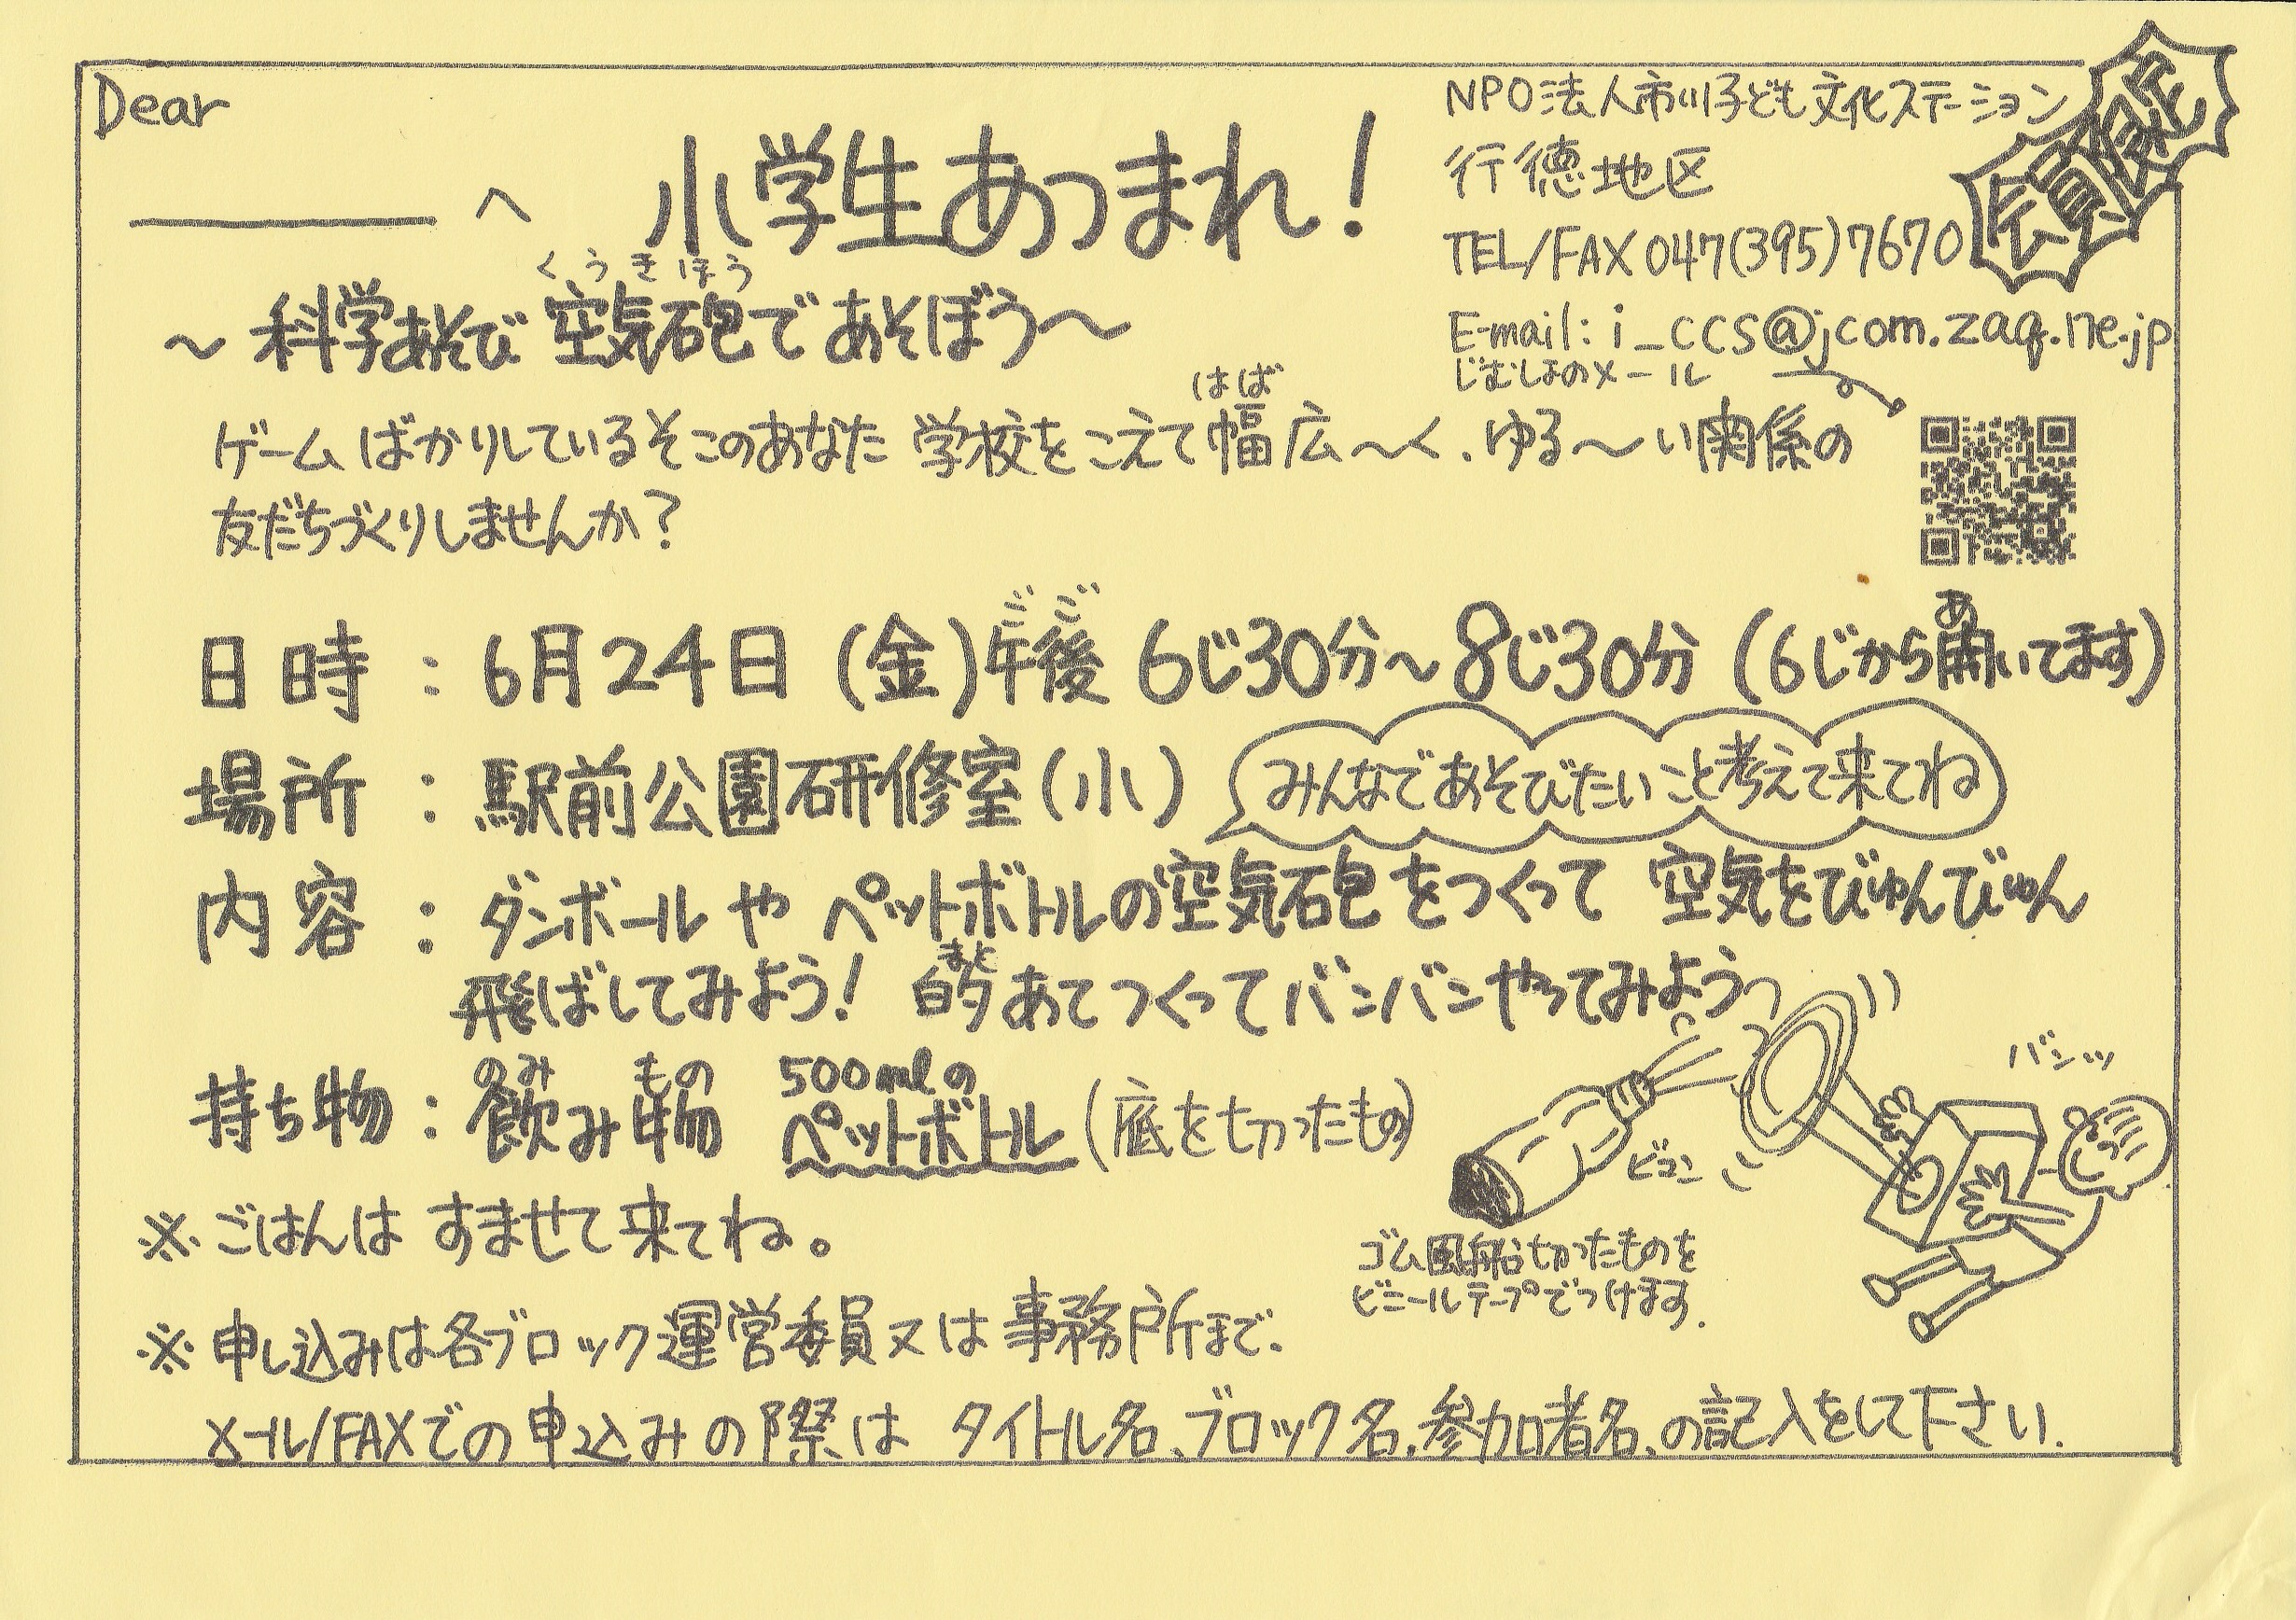 Dear
へ
小学生あつまれ!
NPO法人市川子ども文化ステーション
行徳地区
TEL/FAX 047(395)7670
E-mail: i_ccs@jcom.zaq.ne.jp
じむしょのメール
会員限定
くうきほう
～科学あそび 空気砲であそぼう～
はば
ゲームばかりしているそこのあなた 学校をこえて幅広～く、ゆる～い関係の
友だちづくりしませんか?
ごご あ
日時:6月24日(金)午後6じ30分～8じ30分(6じから開いてます)
場所:駅前公園研修室(小)
みんなであそびたいこと考えて来てね
内容:ダンボールや ペットボトルの空気砲をつくって 空気をびゅんびゅん
まと
飛ばしてみよう! 的あてつくってバンバンやってみよう
のみ もの
持ち物:飲み物 500mlのペットボトル(底を切ったもの)
バンッ
ビュン
ゴム風船切ったものを
ビニールテープでつけます.
※ごはんは すませて来てね。
※申し込みは各ブロック運営委員又は事務所まで.
メール/FAXでの申込みの際は タイトル名、ブロック名、参加者名、の記入をして下さい.